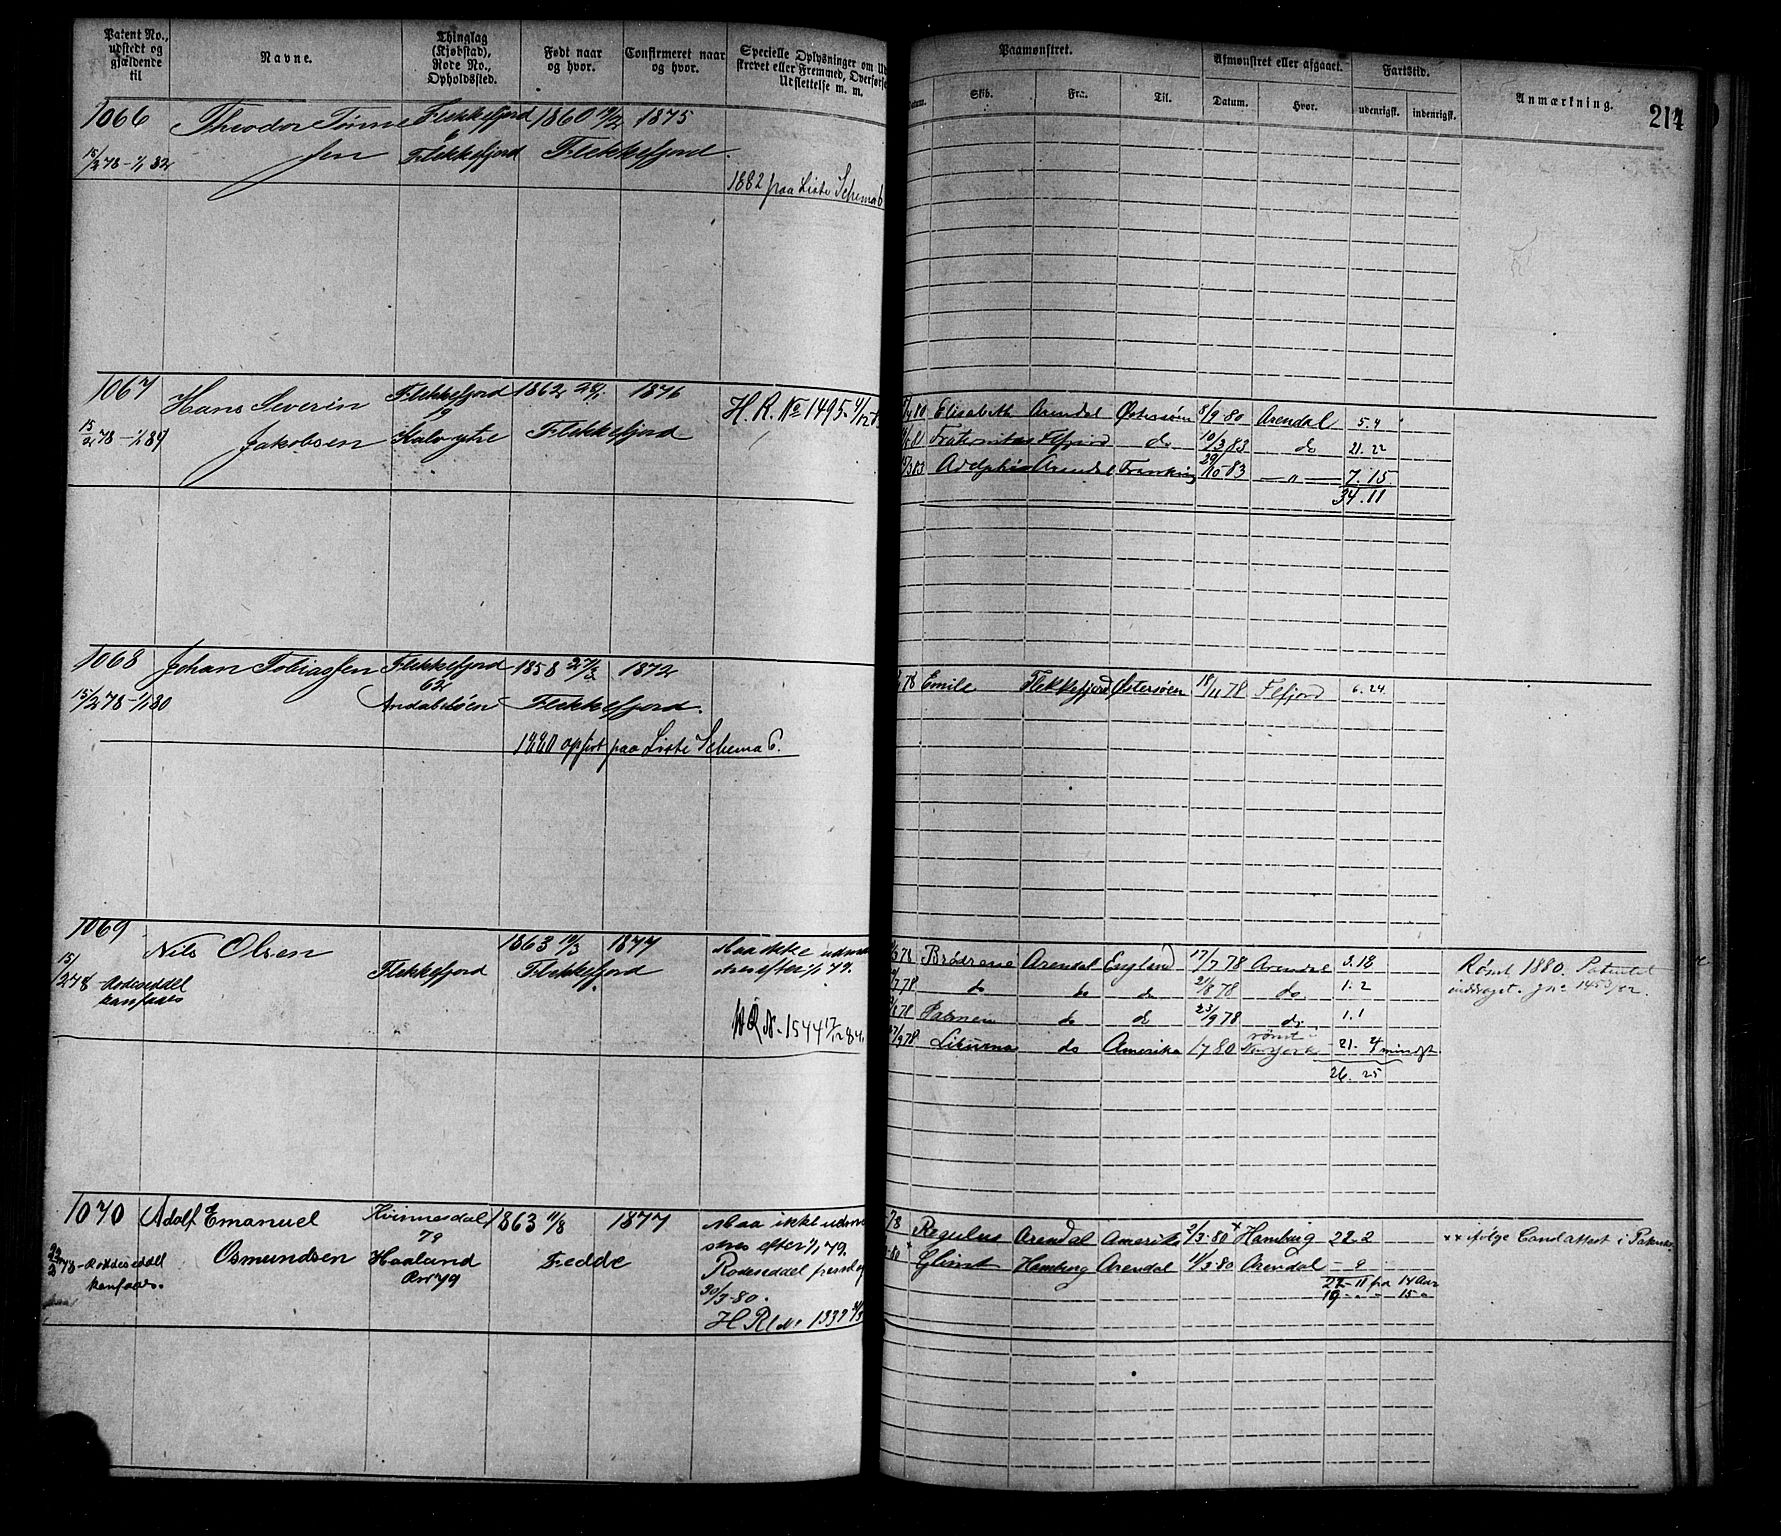 Patent No., udstedt og gjældende til
Navne.
Thinglag (Kjøbstad), Rode No., Opholdssted.
Født naar og hvor.
Confirmeret naar og hvor.
Specielle Oplysninger om
skrevet eller Fremmed, Overførse
Udslettelse m. m.
Paamønstret.
Skib.
Fra.
Til.
Afmønstret eller afgaaet.
Datum.
Hvor.
Fartstid.
udenrigsk.
indenrigsk.
Anmærkning.
214
1066
Theodor Tønne
sen
Flekkefjord
6
Flekkefjord
1860 1875
Flekkefjord.
15/2 78 - 1/1 82
1882 paa Liste Schema 6
1067
Hans Severin
Jakobsen
Flekkefjord
19
1862 1876
Flekkefjord
15/2 78 - 1/1 84
H. R. No 1495
Elisabeth Arendal Østersøen 8/9 80 Arendal 5.4
Fraternitas Flefjord do 10/3 83 do 21.22
Adelphia Arendal 29/10 83 — " — 7.15
34.11
1068
Johan Tobiassen
Flekkefjord
62
1858 27/2 1872
Flekkefjord.
15/2 78 - 1/1 80
1880 opført paa Liste Schema 6.
78 Emilie Flekkefjord Østersøen 18/11 78 Flefjord 6.24
1069
Nils Olsen
Flekkefjord
1863 19/3 1877
Flekkefjord
15/2 78 - Rodeseddel
Maa ikke udmøn
stres efter 1/1 79.
H R N. 1544 17/12 84.
Brødrene Arendal England 17/7 78 Arendal 3.18
do do do 2/8 78 do 1.2
do do 23/9 78 do 1.1
27/9 78 do Amerika 1/7 80 rømt Newyork 21.4 mindst
26.25
Rømt 1880. Patentet
inddraget.
1070
Adolf Emanuel
Osmundsen
Kvinnesdal
79
Haaland
1863 11/8 1877
Fedde
22/2 78 - Rodeseddel
Maa ikke udmøn
stres efter 1/1 79.
Rodeseddel
30/3 - 80.
H R No 1337
78 Regulus Arendal Amerika 2/3 80 Hamburg 22.2
80 Glimt Hamburg Arendal 11/3 80 Arendal - 9
22 - 11 fra 14 Aar
19 - " - " 15 "
xx ifølge Cand attest i